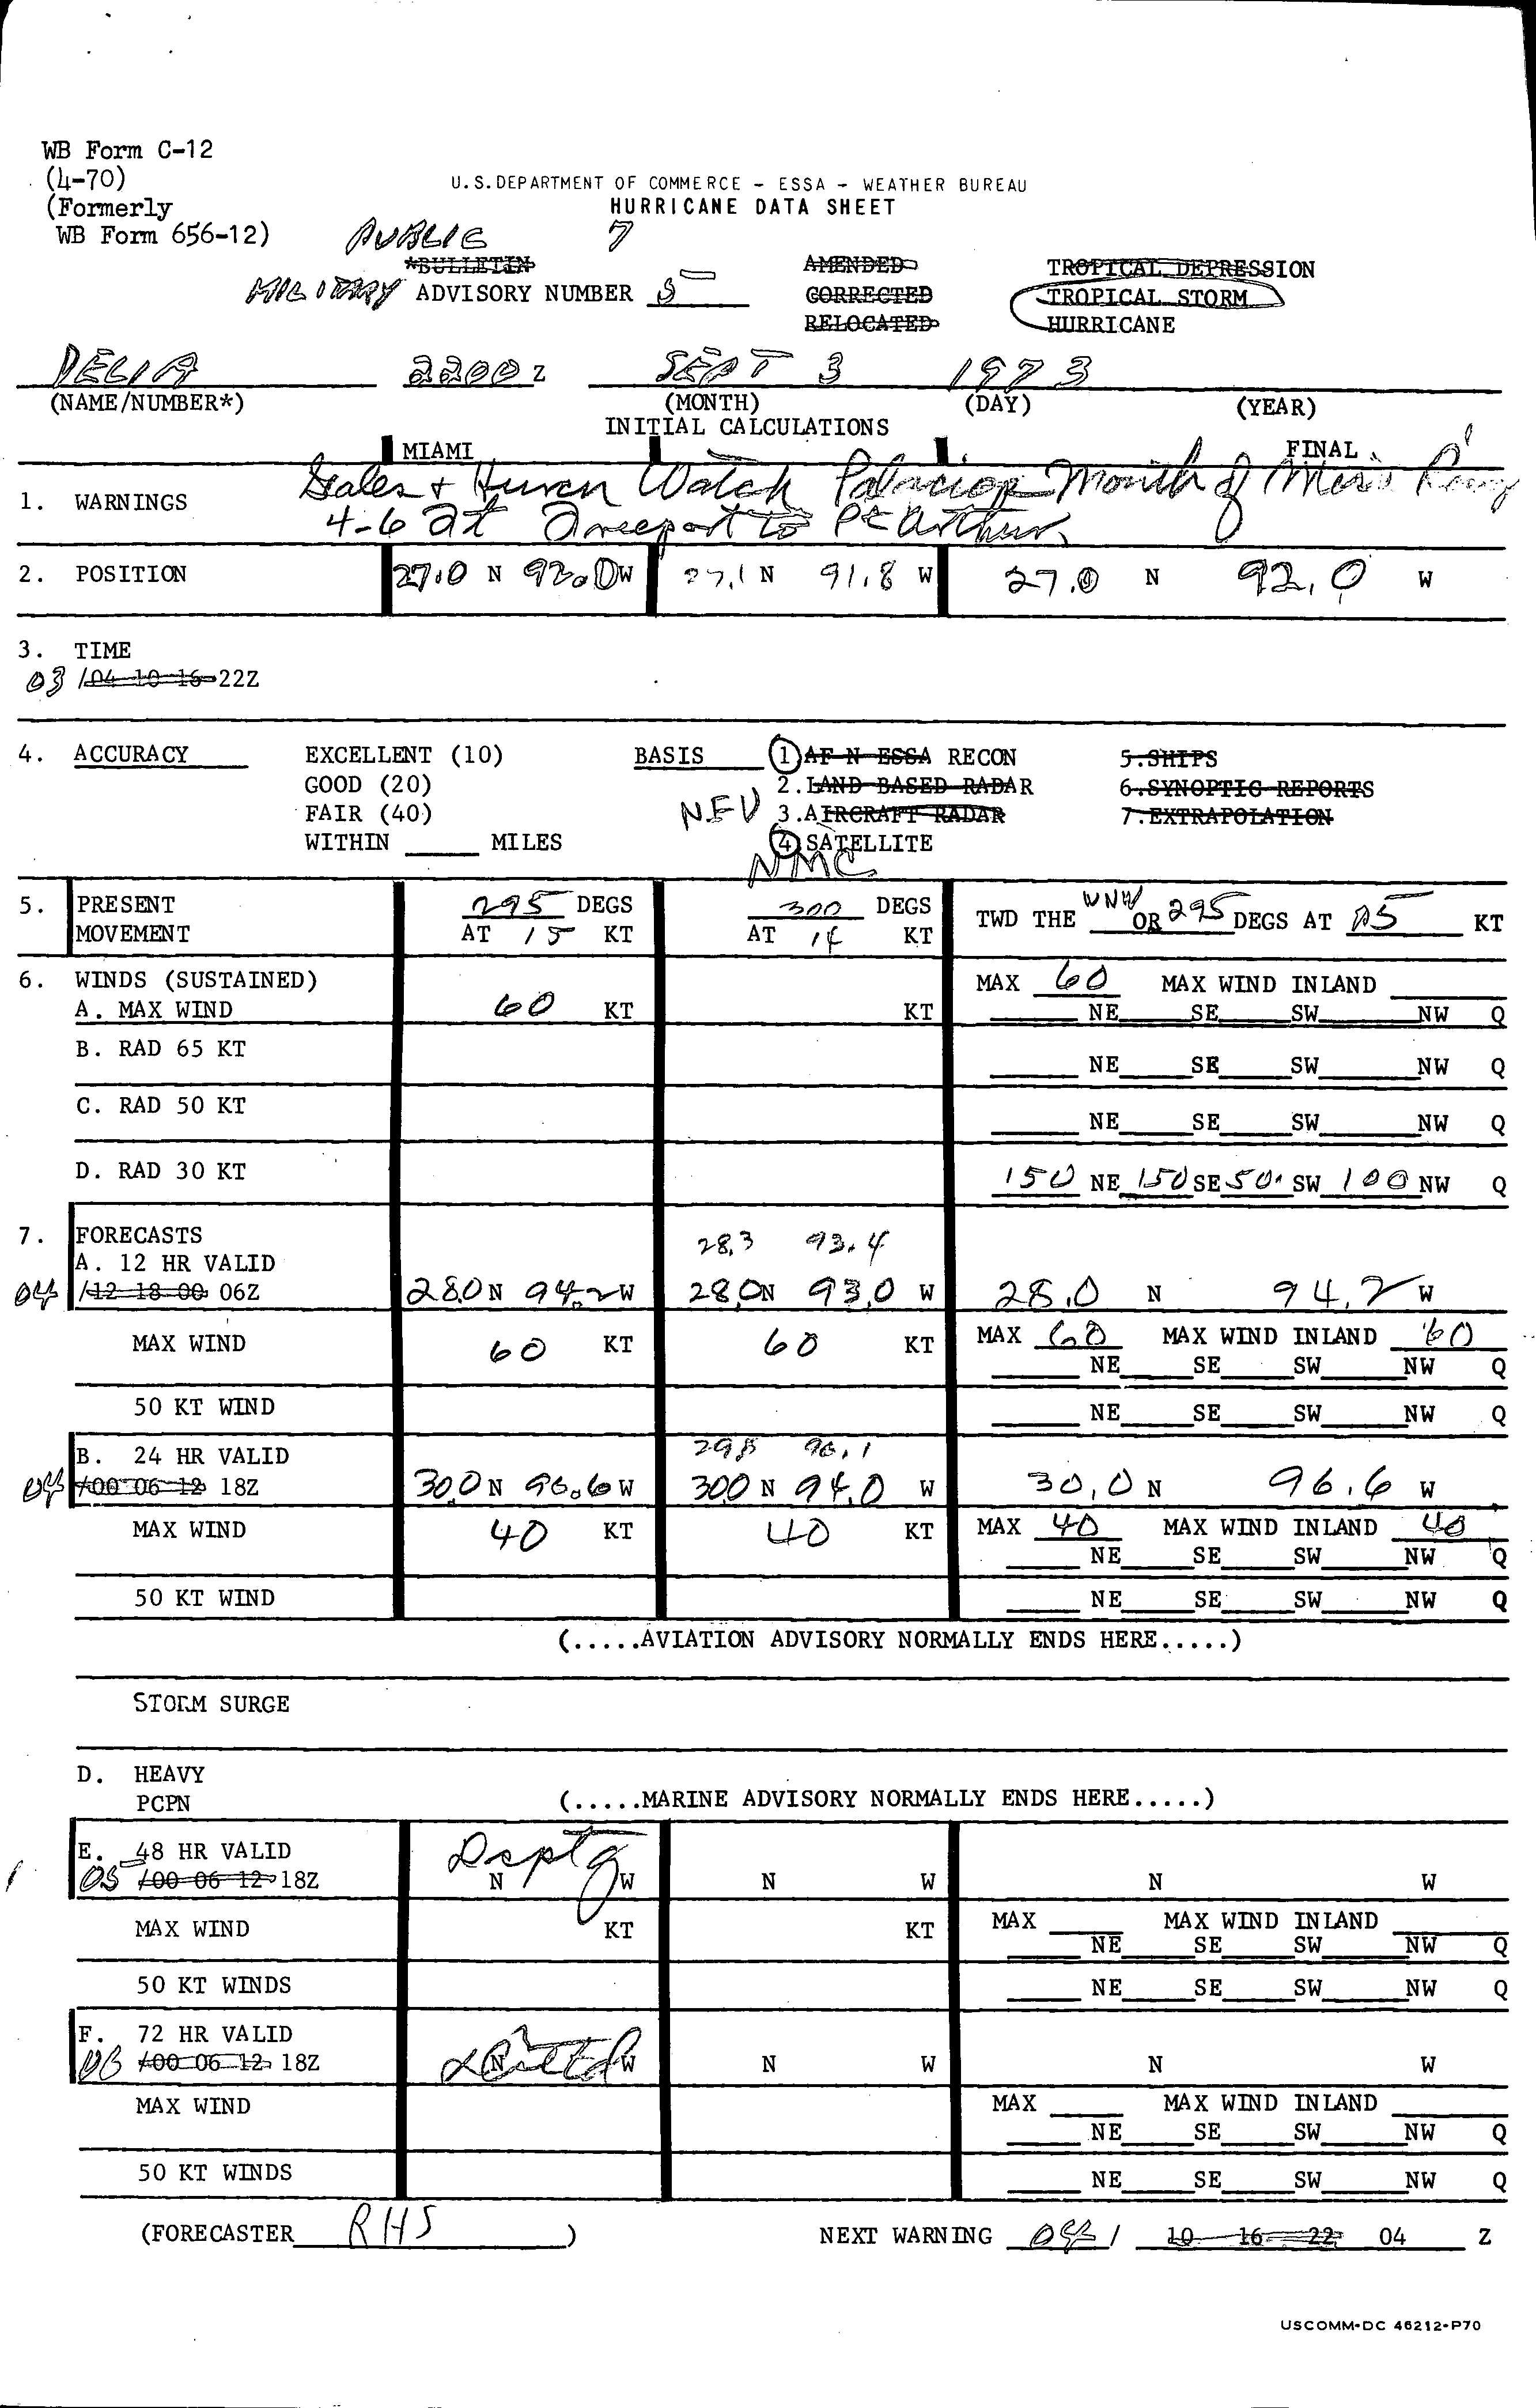 WB Form C-12
(4-70)
(Formerly
WB Form 656-12)
U.S. DEPARTMENT OF COMMERCE - ESSA - WEATHER BUREAU
HURRICANE DATA SHEET
PUBLIC 7
*BULLETIN AMENDED TROPICAL DEPRESSION
MILITARY ADVISORY NUMBER 5 CORRECTED TROPICAL STORM
RELOCATED HURRICANE
DELIA 2200 Z SEPT 3 1973
(NAME/NUMBER*) (MONTH) (DAY) (YEAR)
INITIAL CALCULATIONS
MIAMI FINAL
Gales + Hurcn Watch Palacios Month of Miss
1. WARNINGS
4-6 at Freeport to Pt Arthur
2. POSITION 27.0 N 92.0 W 27.1 N 91.8 W 27.0 N 92.0 W
3. TIME
03 /04 10 16 22Z
4. ACCURACY EXCELLENT (10) BASIS 1 AF N ESSA RECON 5. SHIPS
GOOD (20) 2. LAND BASED RADAR 6. SYNOPTIC REPORTS
FAIR (40) 3. AIRCRAFT RADAR 7. EXTRAPOLATION
WITHIN MILES 4 SATELLITE
NMC
5. PRESENT 295 DEGS 300 DEGS TWD THE WNW OR 295 DEGS AT 15 KT
MOVEMENT AT 15 KT AT 14 KT
6. WINDS (SUSTAINED) MAX 60 MAX WIND INLAND
A. MAX WIND 60 KT KT NE SE SW NW Q
B. RAD 65 KT NE SE SW NW Q
C. RAD 50 KT NE SE SW NW Q
D. RAD 30 KT 150 NE 150 SE 50 SW 100 NW Q
7. FORECASTS 28.3 93.4
A. 12 HR VALID
04 /12 18 00 06Z 28.0 N 94.2 W 28.0 N 93.0 W 28.0 N 94.2 W
MAX WIND 60 KT 60 KT MAX 60 MAX WIND INLAND 60
NE SE SW NW Q
50 KT WIND NE SE SW NW Q
B. 24 HR VALID 96.1
04 /00 06 12 18Z 30.0 N 96.6 W 30.0 N 94.0 W 30.0 N 96.6 W
MAX WIND 40 KT 40 KT MAX 40 MAX WIND INLAND 40
NE SE SW NW Q
50 KT WIND NE SE SW NW Q
(.....AVIATION ADVISORY NORMALLY ENDS HERE.....)
STORM SURGE
D. HEAVY
PCPN (.....MARINE ADVISORY NORMALLY ENDS HERE.....)
E. 48 HR VALID
05 /00 06 12 18Z N W N W N W
MAX WIND KT KT MAX MAX WIND INLAND
NE SE SW NW Q
50 KT WINDS NE SE SW NW Q
F. 72 HR VALID
06 /00 06 12 18Z N W N W N W
MAX WIND MAX MAX WIND INLAND
NE SE SW NW Q
50 KT WINDS NE SE SW NW Q
(FORECASTER RHS ) NEXT WARNING 04 / 10 16 22 04 Z
USCOMM-DC 46212-P70